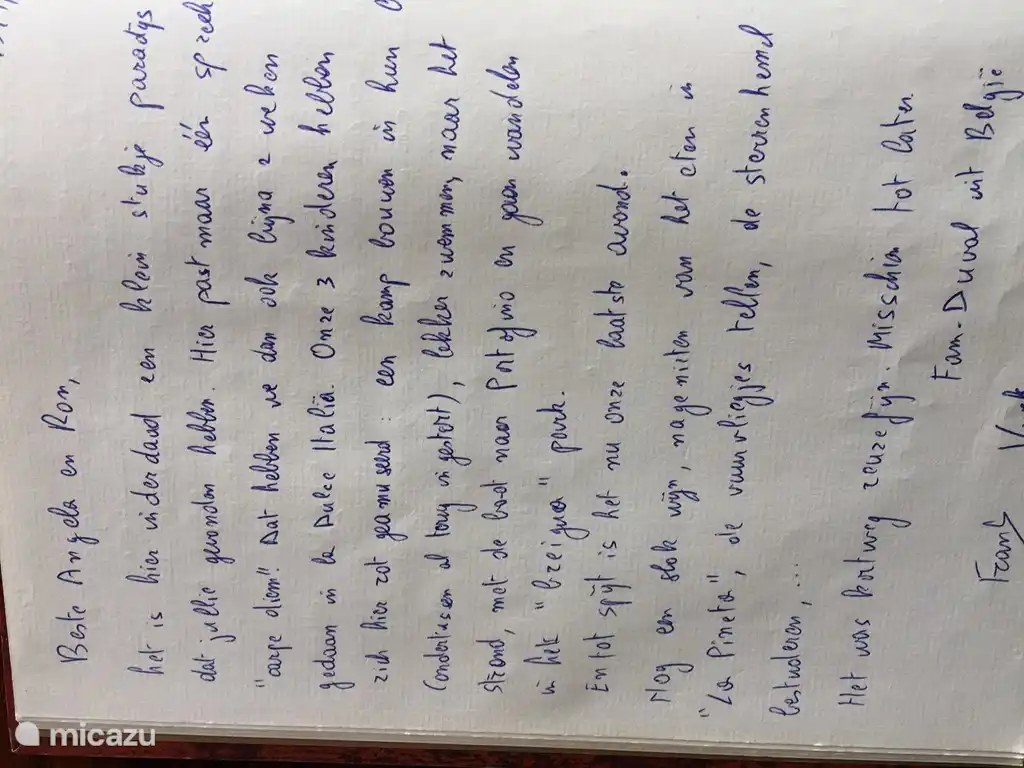 Beste Angela en Ron,
het is hier inderdaad een klein stukje paradijs
dat jullie gevonden hebben. Hier past maar één spreek
"carpe diem". Dat hebben we dan ook bijna 2 weken
gedaan in la Dulce Italia. Onze 3 kinderen hebben
zich hier rot geamuseerd: een kamp bouwen in hun
(ondertussen al terug ingestort), lekker zwemmen, naar het
strand, met de boot naar Portofino en gaan wandelen
in het "breigna" park.
En tot spijt is het nu onze laatste avond.
Nog een slok wijn, nagenieten van het eten in
"La Pineta", de vuurvliegjes tellen, de sterrenhemel
bestuderen,...
Het was kortweg reuzefijn. Misschien tot later.
Fam. Duval uit België
Frank
micazu